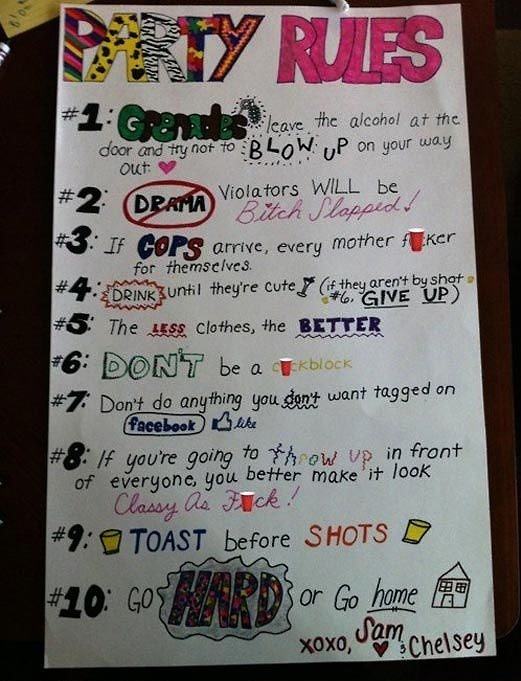 PARTY RULES
#1: Grenades leave the alcohol at the
door and try not to BLOW UP on your way
out.
#2: DRAMA Violators WILL be
Bitch Slapped!
#3: If COPS arrive, every mother f ker
for themselves.
#4: DRINK until they're cute (if they aren't by shot
#6, GIVE UP)
#5: The LESS clothes, the BETTER
#6: DON'T be a c ckblock
#7: Don't do anything you don't want tagged on
facebook like
#8: If you're going to throw up in front
of everyone, you better make it look
Classy As F ck!
#9: TOAST before SHOTS
#10: GO HARD or Go home
xoxo, Sam & Chelsey